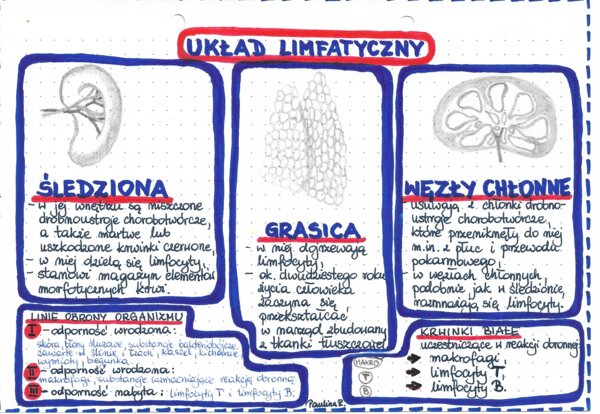 UKŁAD LIMFATYCZNY
ŚLEDZIONA
- w jej wnętrzu są niszczone
drobnoustroje chorobotwórcze,
a także martwe lub
uszkodzone krwinki czerwone,
- w niej dzielą się limfocyty,
- stanowi magazyn elementów
morfotycznych krwi.
GRASICA
- w niej dojrzewają
limfocyty,
- ok. dwudziestego roku
życia człowieka
zaczyna się
przekształcać
w narząd zbudowany
z tkanki tłuszczowej
WĘZŁY CHŁONNE
- usuwają z chłonki drobno-
ustroje chorobotwórcze,
które przeniknęły do niej
m.in. z płuc i przewodu
pokarmowego,
- w węzłach chłonnych,
podobnie jak w śledzionie,
rozmnażają się limfocyty.
LINIE OBRONY ORGANIZMU
I - odporność wrodzona:
skóra, błony śluzowe, substancje bakteriobójcze,
zawarte w ślinie i łzach, kaszel, kichanie,
wymioty, biegunka
II - odporność wrodzona:
makrofagi, substancje wzmacniające reakcję obronną
III - odporność nabyta: limfocyty T i limfocyty B.
KRWINKI BIAŁE
uczestniczące w reakcji obronnej:
MAKRO → makrofagi,
T → limfocyty T,
B → limfocyty B.
Paulina R.